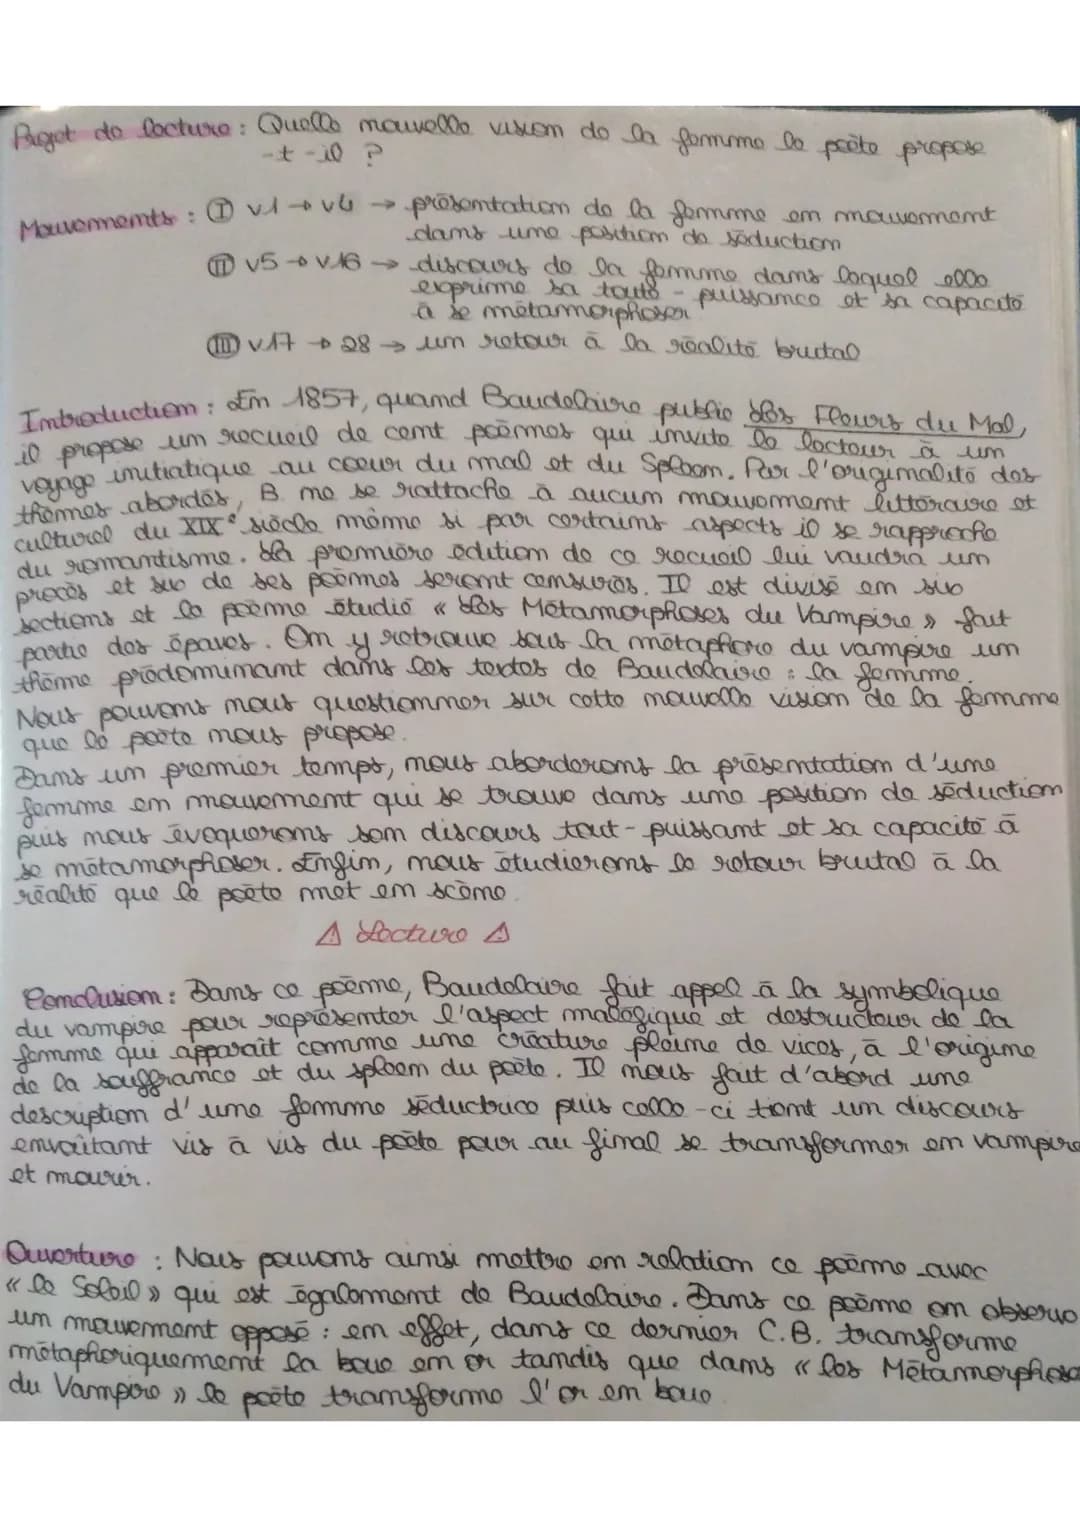 Projet de lecture : Quelle nouvelle vision de la femme le poète propose
-t-il ?
Mouvements : I v1 → v4 → présentation de la femme en mouvement
dans une position de séduction
II v5 → v16 → discours de la femme dans lequel elle
exprime sa toute-puissance et sa capacité
à se métamorphoser
III v17 → 28 → un retour à la réalité brutal
Introduction : En 1857, quand Baudelaire publie Les Fleurs du Mal,
il propose un recueil de cent poèmes qui invite le lecteur à un
voyage initiatique au coeur du mal et du Spleen. Par l'originalité des
thèmes abordés, B ne se rattache à aucun mouvement littéraire et
culturel du XIXe siècle même si par certains aspects il se rapproche
du romantisme. La première édition de ce recueil lui vaudra un
procès et six de ses poèmes seront censurés. Il est divisé en six
sections et le poème étudié « Les Métamorphoses du Vampire » fait
partie des épaves. On y retrouve sous la métaphore du vampire un
thème prédominant dans les textes de Baudelaire : la femme.
Nous pouvons nous questionner sur cette nouvelle vision de la femme
que le poète nous propose.
Dans un premier temps, nous aborderons la présentation d'une
femme en mouvement qui se trouve dans une position de séduction
puis nous évoquerons son discours tout-puissant et sa capacité à
se métamorphoser. Enfin, nous étudierons le retour brutal à la
réalité que le poète met en scène.
⚠ Lecture ⚠
Conclusion : Dans ce poème, Baudelaire fait appel à la symbolique
du vampire pour représenter l'aspect maléfique et destructeur de la
femme qui apparaît comme une créature pleine de vices, à l'origine
de la souffrance et du spleen du poète. Il nous fait d'abord une
description d'une femme séductrice puis celle-ci tient un discours
envoûtant vis à vis du poète pour au final se transformer en vampire
et mourir.
Ouverture : Nous pouvons ainsi mettre en relation ce poème avec
« le Soleil » qui est également de Baudelaire. Dans ce poème on observe
un mouvement opposé : en effet, dans ce dernier C.B. transforme
métaphoriquement la boue en or tandis que dans « les Métamorphoses
du Vampire » le poète transforme l'or en boue